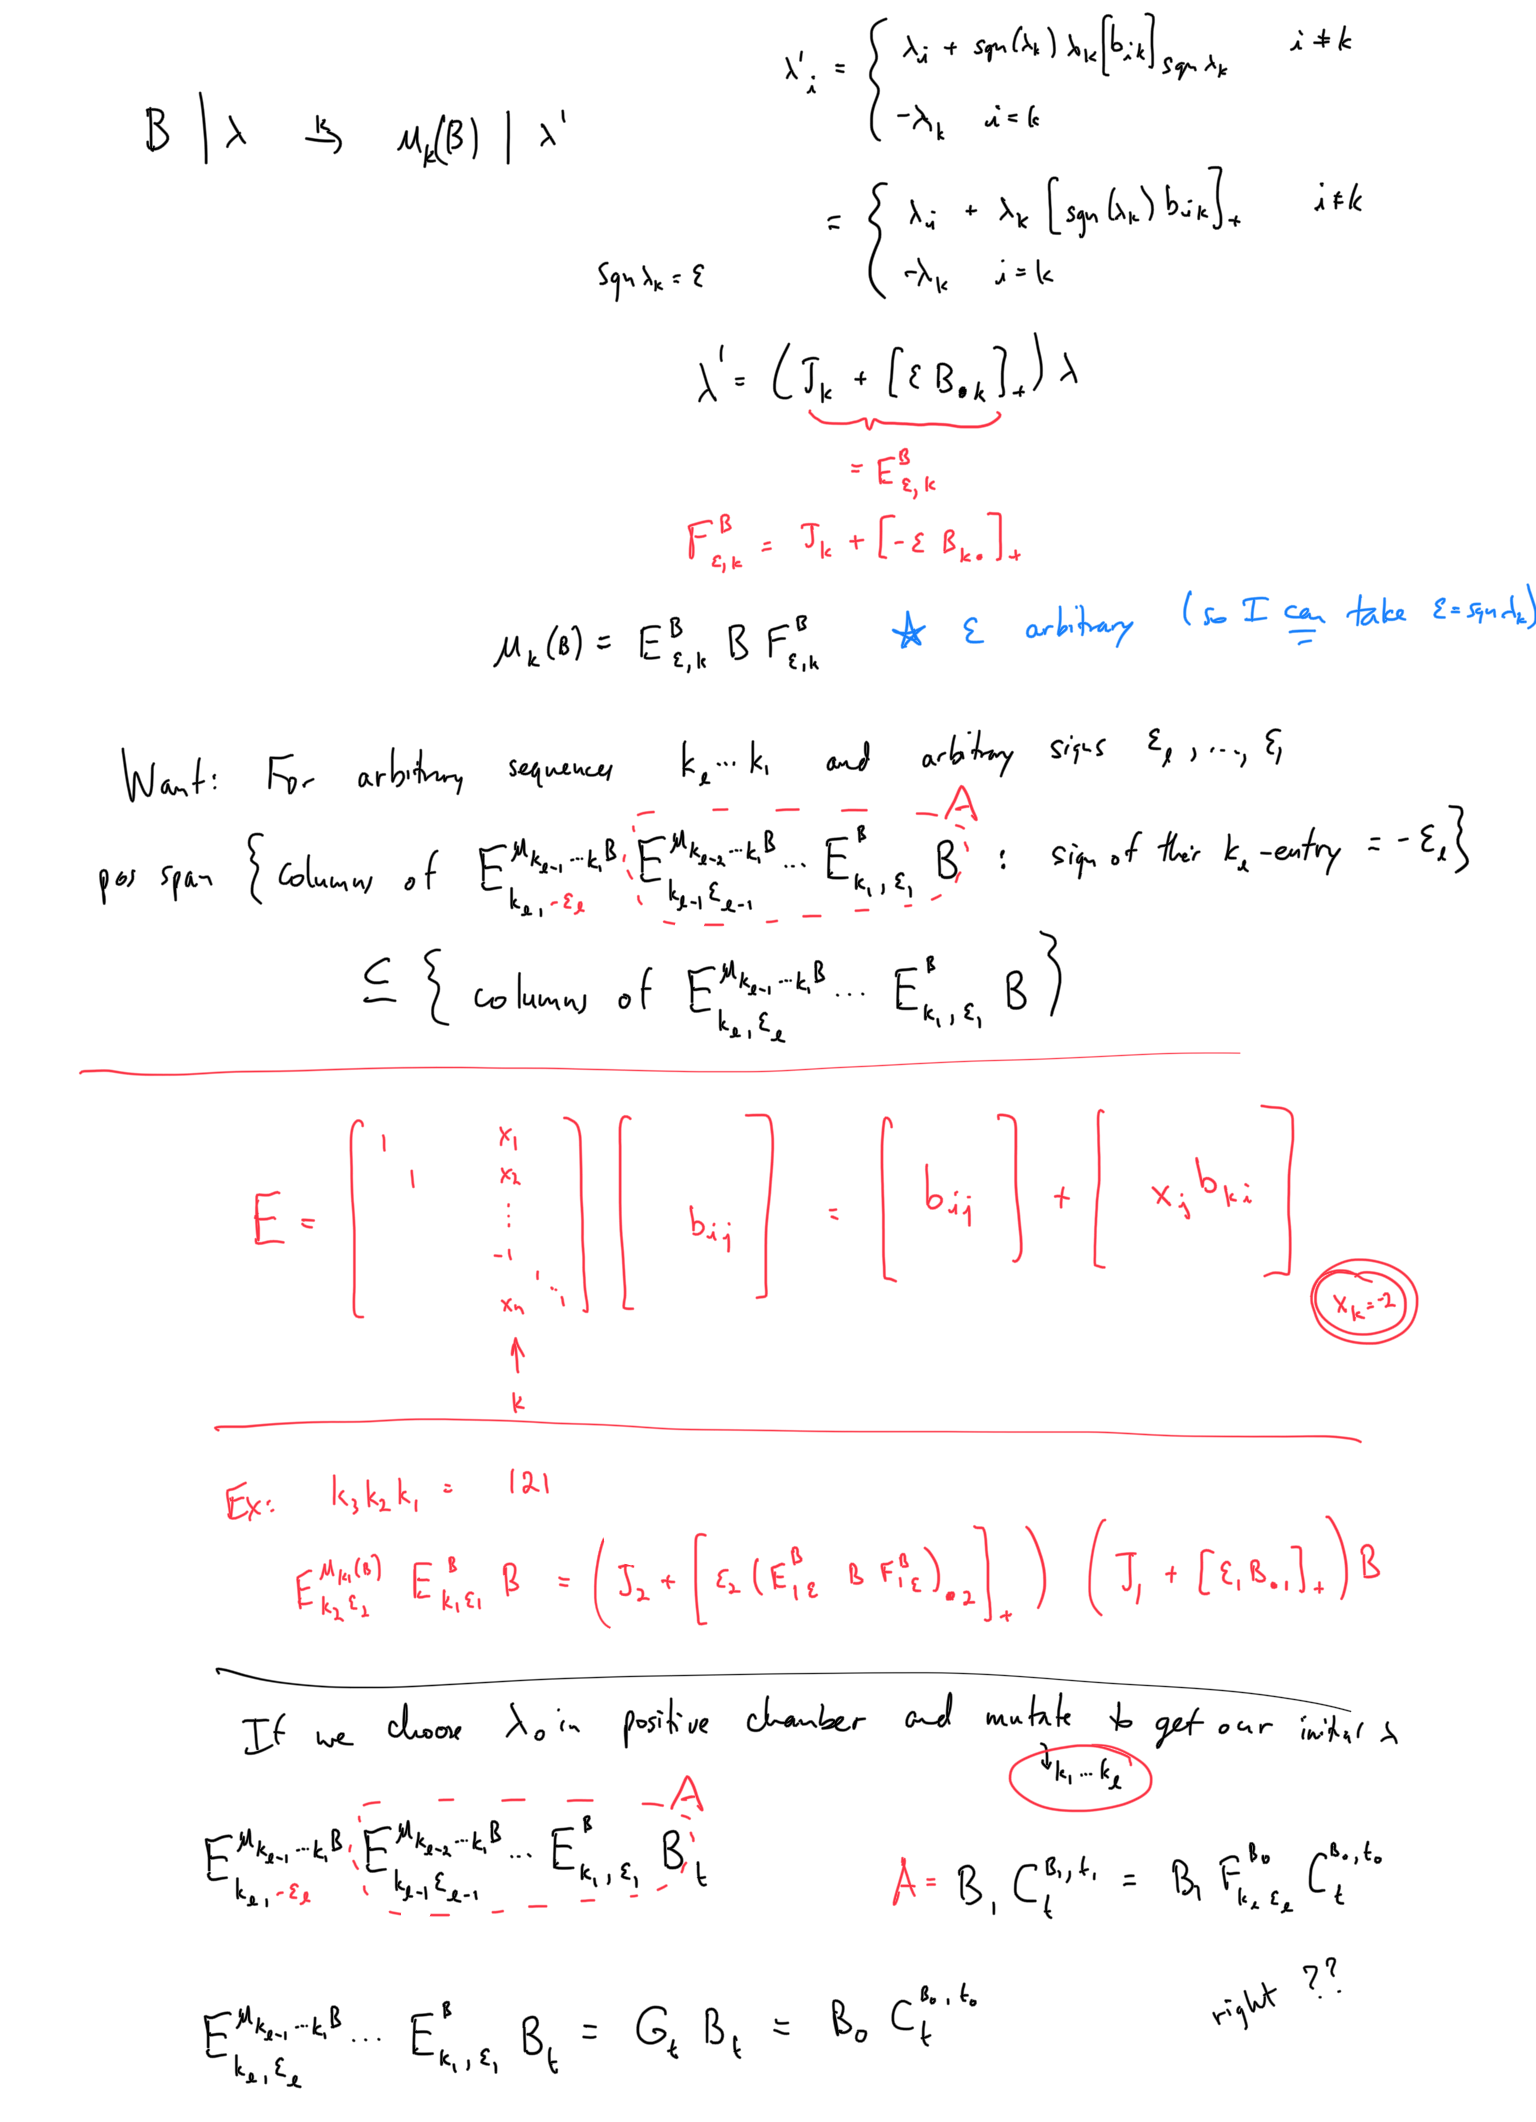 B | λ →^k μ_k(B) | λ'
λ'_i = { λ_i + sgn(λ_k) λ_k [b_{ik}]_{sgn λ_k} i ≠ k
-λ_k i = k
= { λ_i + λ_k [sgn(λ_k) b_{ik}]_+ i ≠ k
-λ_k i = k
sgn λ_k = ε
λ' = (J_k + [ε B_{•k}]_+) λ
= E^B_{ε,k}
F^B_{ε,k} = J_k + [-ε B_{k•}]_+
μ_k(B) = E^B_{ε,k} B F^B_{ε,k} ☆ ε arbitrary (so I can take ε = sgn λ_k)
Want: For arbitrary sequences k_ℓ ⋯ k_1 and arbitrary signs ε_ℓ, …, ε_1
A
pos span { columns of E^{μ_{k_{ℓ-1}} ⋯ k_1 B}_{k_ℓ, -ε_ℓ} E^{μ_{k_{ℓ-2}} ⋯ k_1 B}_{k_{ℓ-1} ε_{ℓ-1}} ⋯ E^B_{k_1, ε_1} B : sign of their k_ℓ-entry = -ε_ℓ }
⊆ { columns of E^{μ_{k_{ℓ-1}} ⋯ k_1 B}_{k_ℓ, ε_ℓ} ⋯ E^B_{k_1, ε_1} B }
E = [ 1 1 x_1 x_2 ⋮ -1 1 ⋱ 1 x_n ] [ b_{ij} ] = [ b_{ij} ] + [ x_j b_{ki} ]
x_k = -2
↑
k
Ex: k_3 k_2 k_1 = 121
E^{μ_{k_1}(B)}_{k_2 ε_2} E^B_{k_1 ε_1} B = (J_2 + [ε_2 (E^B_{1ε} B F^B_{1ε})_{•2}]_+) (J_1 + [ε_1 B_{•1}]_+) B
If we choose λ_0 in positive chamber and mutate to get our initial λ
↓ k_1 ⋯ k_ℓ
A
E^{μ_{k_{ℓ-1}} ⋯ k_1 B}_{k_ℓ, -ε_ℓ} E^{μ_{k_{ℓ-2}} ⋯ k_1 B}_{k_{ℓ-1} ε_{ℓ-1}} ⋯ E^B_{k_1, ε_1} B_t
A = B_1 C_t^{B_1, t_1} = B_1 F^{B_0}_{k_ℓ ε_ℓ} C_t^{B_0, t_0}
E^{μ_{k_{ℓ-1}} ⋯ k_1 B}_{k_ℓ, ε_ℓ} ⋯ E^B_{k_1, ε_1} B_t = G_t B_t = B_0 C_t^{B_0, t_0}
right ??